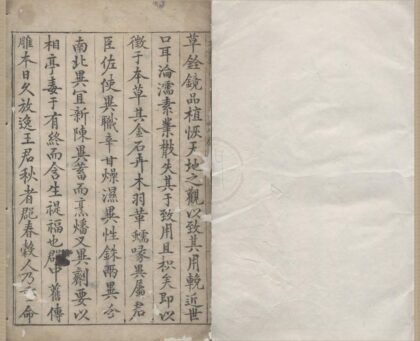 草銓鏡品植恢天地之觀以致其用輓近世
口耳淪濡素業散失其于致用且枳矣即以
徵于本草其金石卉木羽革蠕喙異屬君
臣佐使異職辛甘燥濕異性銖兩異分
南北異宜新陳異蓄而烹燔又異劑要以
相亭毒于有終而含生禔福也郡中舊傳
雕本日久放逸王君秋者郡春穀人乃命